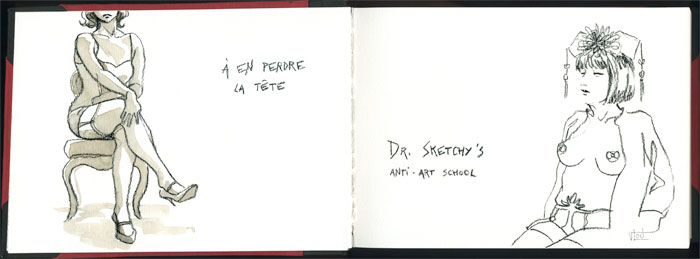 À EN PERDRE
LA TÊTE
DR. SKETCHY'S
ANTI-ART SCHOOL